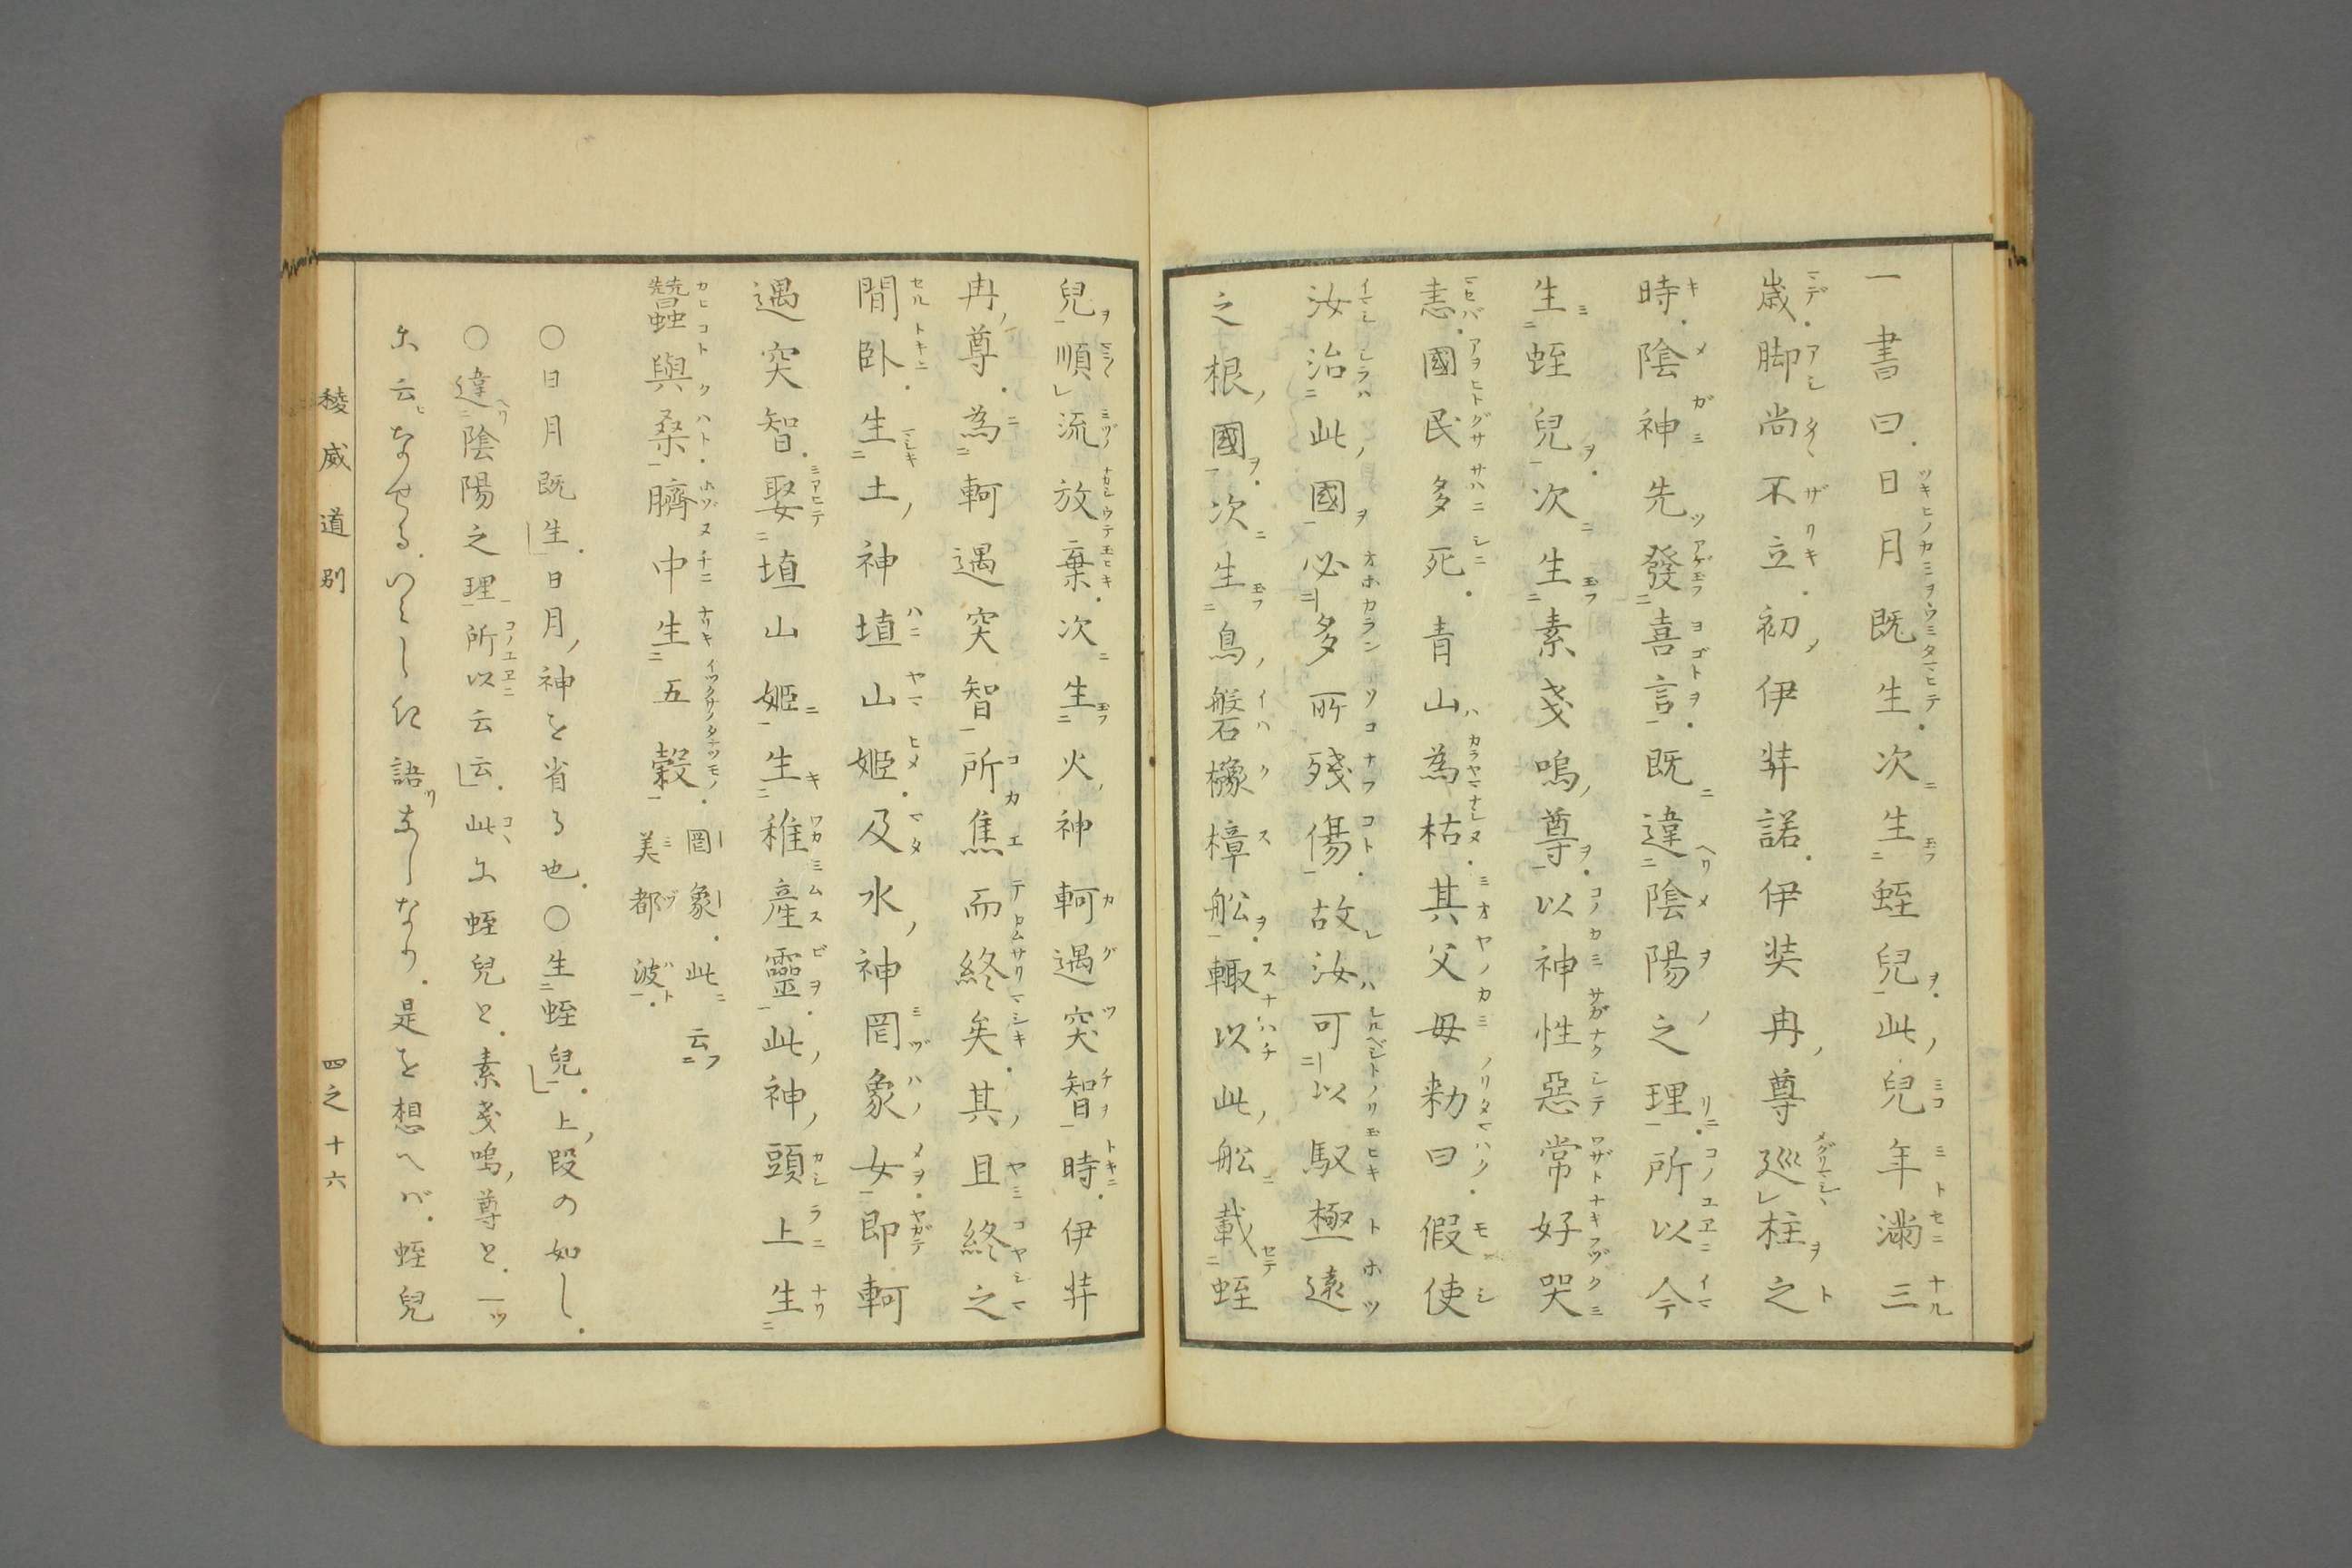 一書曰日月既生次生蛭兒此兒年満三
歳脚尚不立初伊弉諾伊弉冉尊巡柱之
時陰神先發喜言既違陰陽之理所以今
生蛭兒次生素戔嗚尊以神性惡常好哭
恚國民多死青山為枯其父母勅曰假使
汝治此國必多所殘傷故汝可以馭極遠
之根國次生鳥磐櫲樟舩輙以此舩載蛭
兒順流放棄次生火神軻遇突智時伊弉
冉尊為軻遇突智所焦而終矣其且終之
間臥生土神埴山姫及水神罔象女即軻
遇突智娶埴山姫生稚産靈此神頭上生
蠶與桑臍中生五穀罔象此云美都波
〇日月既生日月神を省る也〇生蛭兒上段の如し
〇違陰陽之理所以云云此に蛭兒と素戔嗚尊と一ツ
に云なせるいといと語なしなり是を想へバ蛭兒
稜威道別 四之十六